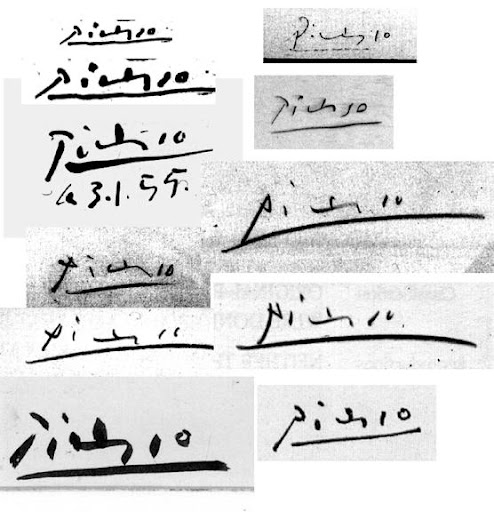 Picasso
Picasso
Picasso
Picasso
Picasso
le 3.1.55.
Picasso
Picasso
Picasso
Picasso
Picasso
Picasso